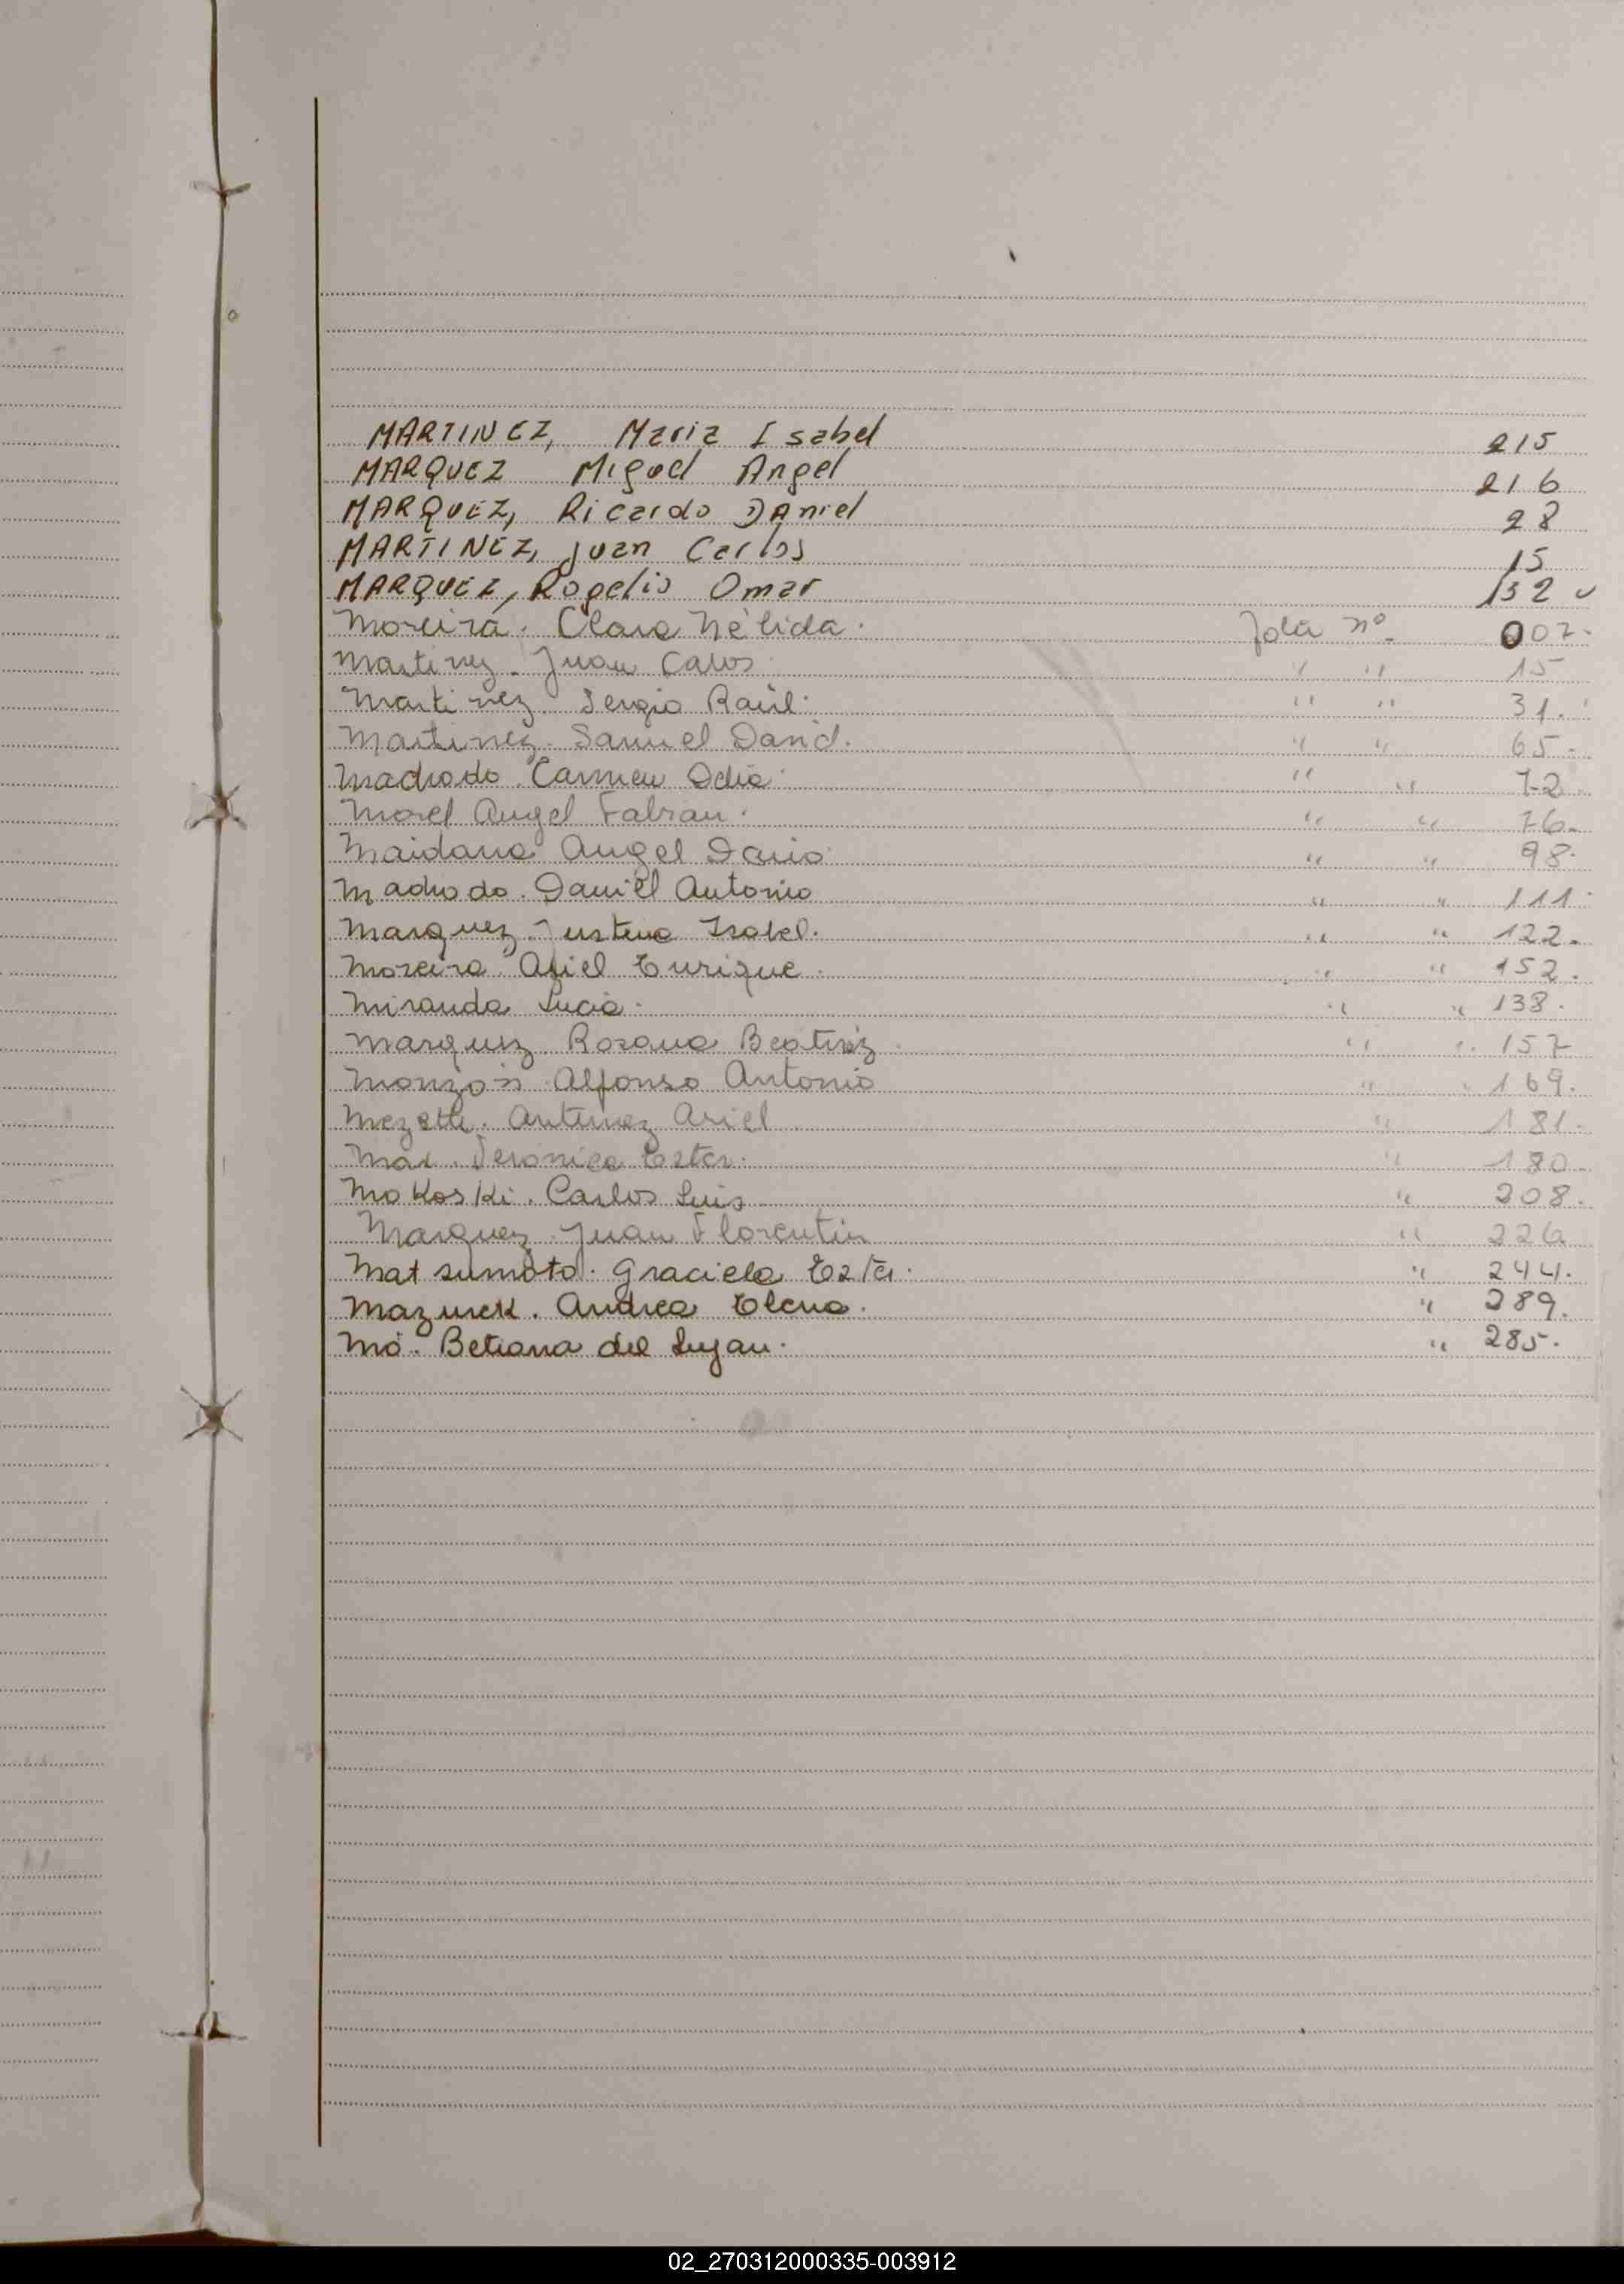 MARTINEZ, Maria Isabel 215
MARQUEZ Miguel Angel 216
MARQUEZ, Ricardo DAniel 28
MARTINEZ, Juan Carlos 15
MARQUEZ, Rogelio Omar 132
Moreira. Clara Nèlida. nº 007.
Martinez. Juan Calos. " " 15
Martinez. Sergio Raúl. " " 31.
Martinez. Samuel David. " " 65.
Machado. Carmen " " 72.
Morel Angel Fabian. " " 76.
Maidana Angel Dario " " 98.
Machado. Daniel Antonio " " 111.
Marquez. Justina Isabel. " " 122.
Moreira Ariel Enrique. " " 152.
Miranda Lucia. " " 138.
Marquez Rosana Beatriz. " " 157
Monzón Alfonso Antonio " " 169.
Antunez Ariel " 181.
Veronica Ester. " 180.
MoKosKi. Carlos Luis " 208.
Marquez. Juan Florentin " 226
Matsumoto. Graciela Ester. " 244.
MazureK. Andrea Elena. " 289.
Mó. Betiana del Lujan. " 285.
02_270312000335-003912